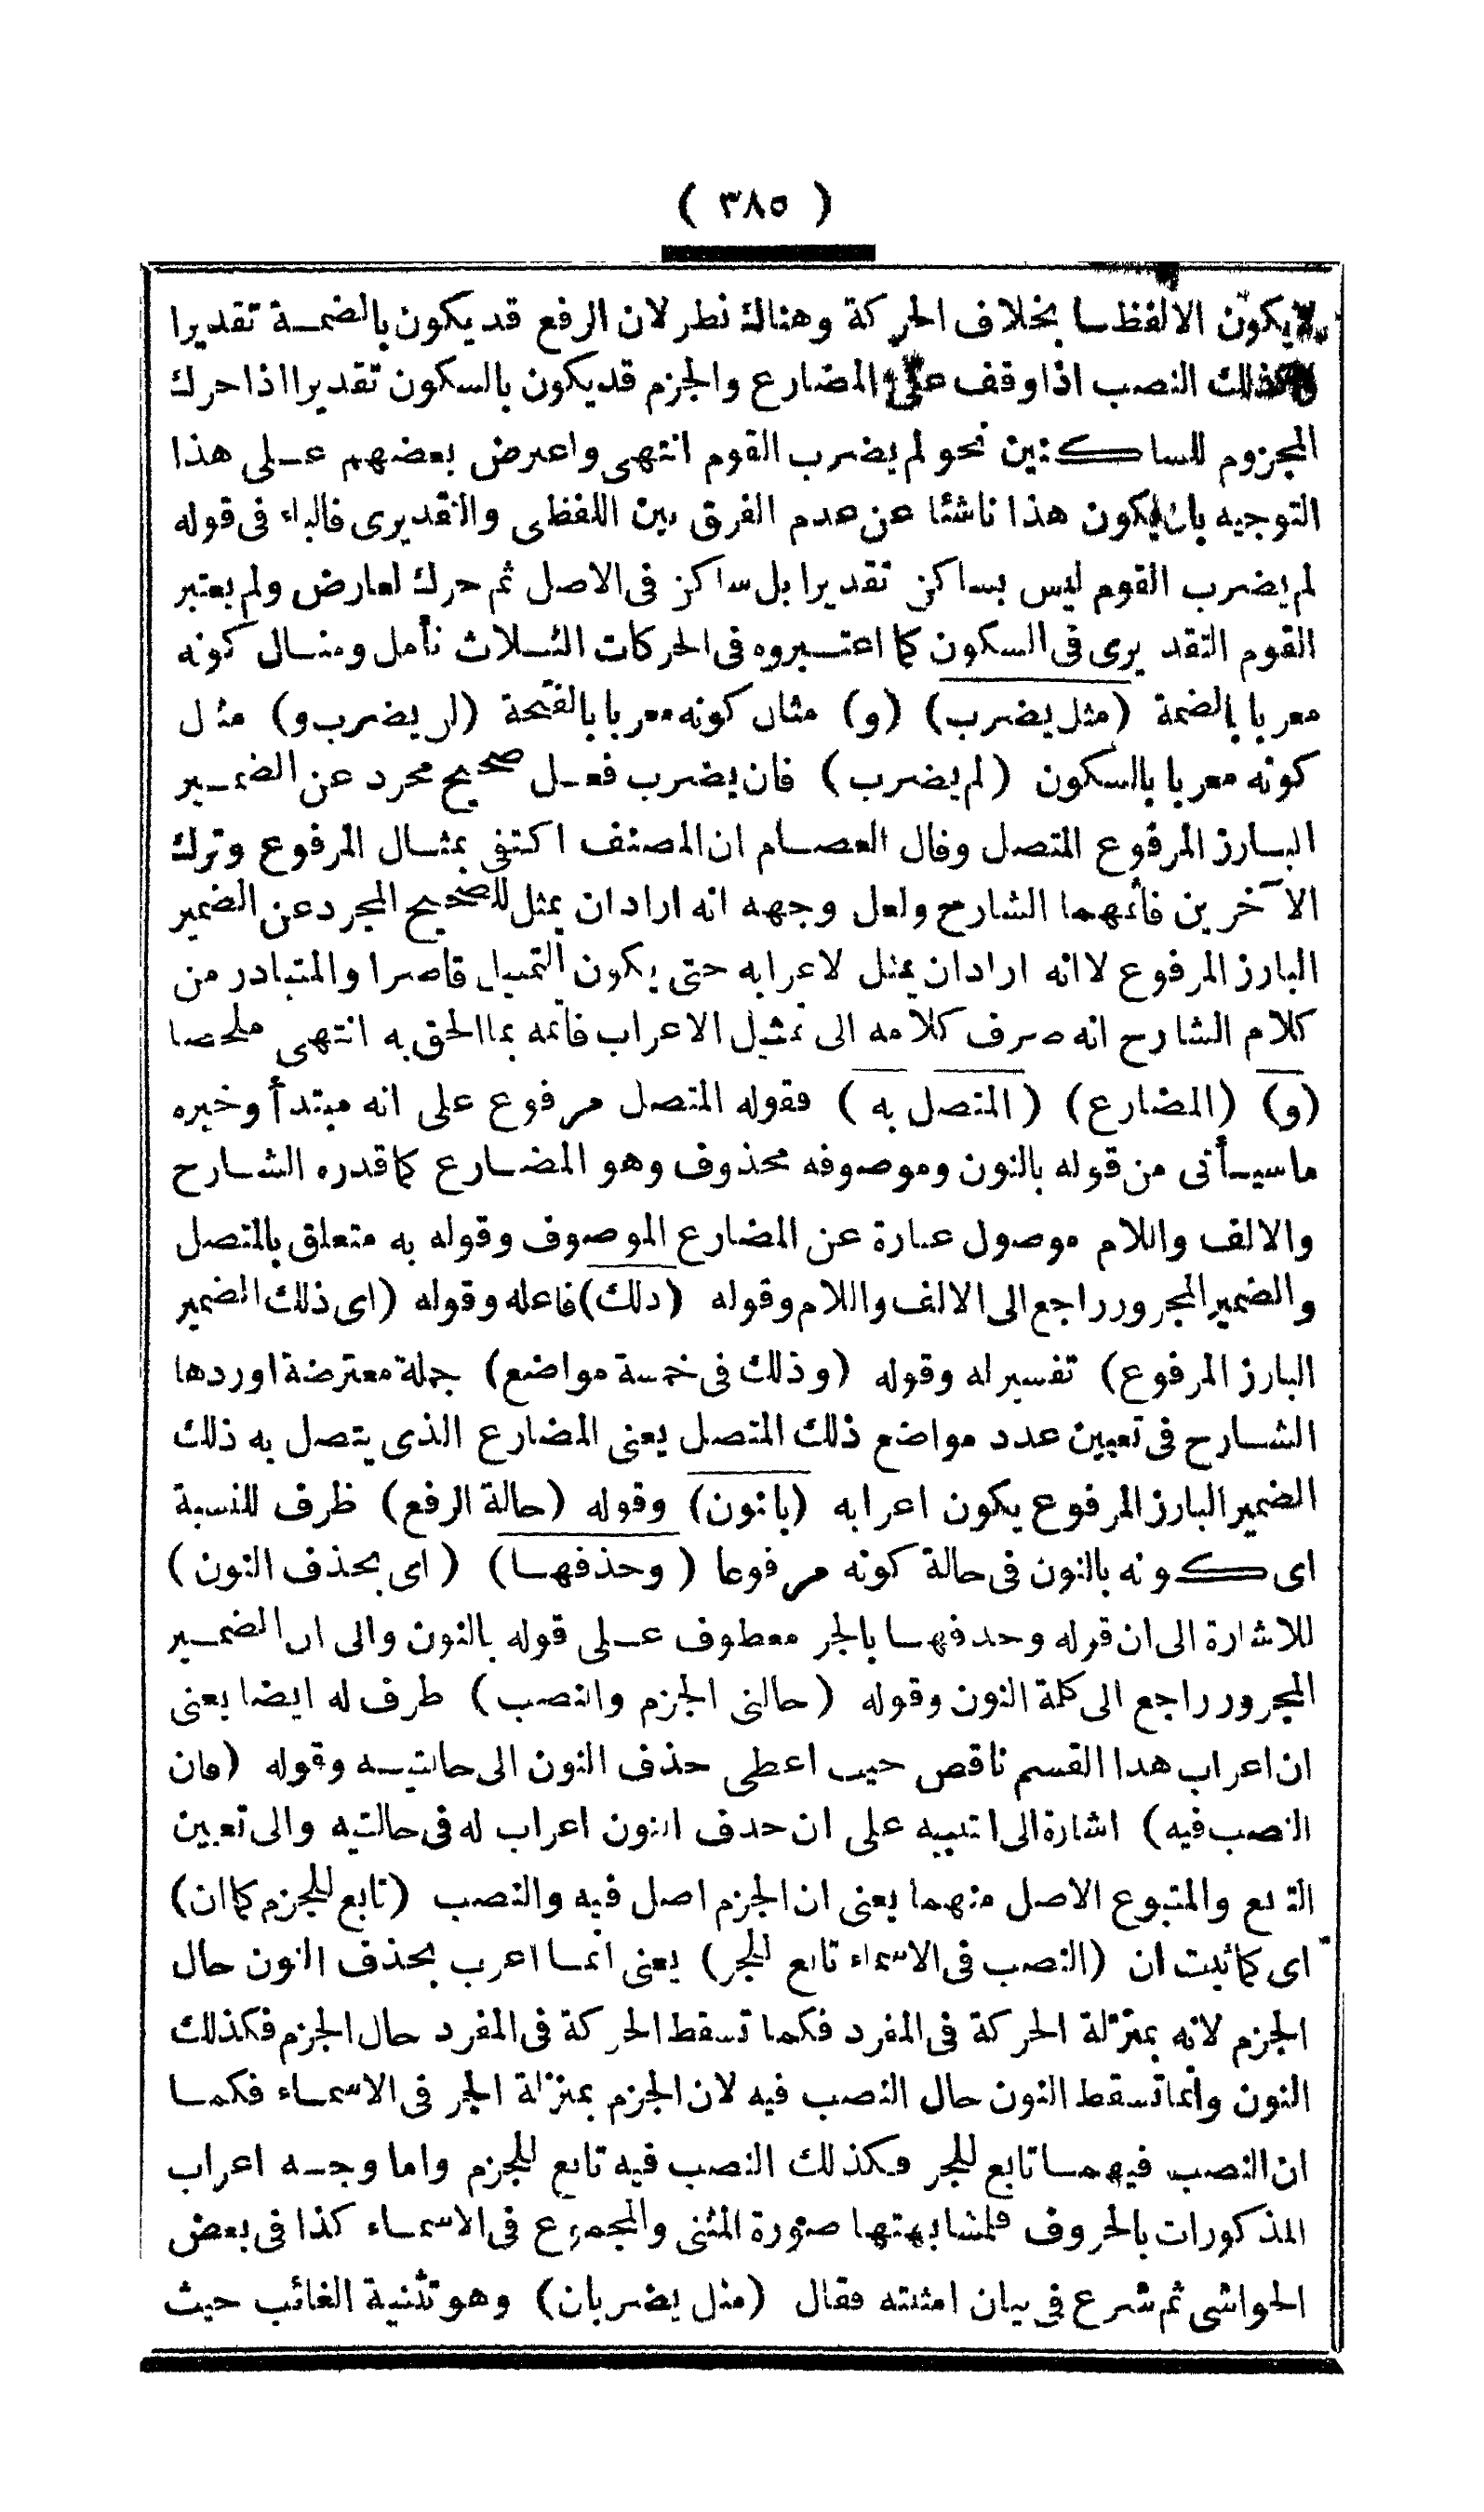 ( ٣٨٥ )
لايكون الالفظيا بخلاف الحركة وهناك نظر لان الرفع قد يكون بالضمة تقديرا
وكذلك النصب اذا وقف على المضارع والجزم قد يكون بالسكون تقديرا اذا حرك
المجزوم للساكنين نحو لم يضرب القوم انتهى واعترض بعضهم على هذا
التوجيه بان يكون هذا ناشئا عن عدم الفرق بين اللفظى والتقديرى فالباء فى قوله
لم يضرب القوم ليس بساكن تقديرا بل ساكن فى الاصل ثم حرك لعارض ولم يعتبر
القوم التقديرى فى السكون كما اعتبروه فى الحركات الثلاث تأمل ومثال كونه
معربا بالضمة (مثل يضرب) (و) مثال كونه معربا بالفتحة (لن يضرب و) مثل
كونه معربا بالسكون (لم يضرب) فان يضرب فعل صحيح مجرد عن الضمير
البارز المرفوع المتصل وقال العصام ان المصنف اكتفى بمثال المرفوع وترك
الآخرين فأتمهما الشارح ولعل وجهه انه اراد ان يمثل للصحيح المجرد عن الضمير
البارز المرفوع لا انه اراد ان يمثل لاعرابه حتى يكون التمثيل قاصرا والمتبادر من
كلام الشارح انه صرف كلامه الى تمثيل الاعراب فأتمه بما الحق به انتهى ملخصا
(و) (المضارع) (المتصل به) فقوله المتصل مرفوع على انه مبتدأ وخبره
ما سيأتى من قوله بالنون وموصوفه محذوف وهو المضارع كما قدره الشارح
والالف واللام موصول عبارة عن المضارع الموصوف وقوله به متعلق بالمتصل
والضمير المجرور راجع الى الالف واللام وقوله (ذلك) فاعله وقوله (اى ذلك الضمير
البارز المرفوع) تفسير له وقوله (وذلك فى خمسة مواضع) جملة معترضة اوردها
الشارح فى تعيين عدد مواضع ذلك المتصل يعنى المضارع الذى يتصل به ذلك
الضمير البارز المرفوع يكون اعرابه (بالنون) وقوله (حالة الرفع) ظرف للنسبة
اى كونه بالنون فى حالة كونه مرفوعا (وحذفها) (اى بحذف النون)
للاشارة الى ان قوله وحذفها بالجر معطوف على قوله بالنون والى ان الضمير
المجرور راجع الى كلمة النون وقوله (حالتى الجزم والنصب) ظرف له ايضا يعنى
ان اعراب هذا القسم ناقص حيث اعطى حذف النون الى حالتيه وقوله (فان
النصب فيه) اشارة الى التنبيه على ان حذف النون اعراب له فى حالتيه والى تعيين
التابع والمتبوع الاصل منهما يعنى ان الجزم اصل فيه والنصب (تابع للجزم كما ان)
اى كما ثبت ان (النصب فى الاسماء تابع للجر) يعنى انما اعرب بحذف النون حال
الجزم لانه بمنزلة الحركة فى المفرد فكما تسقط الحركة فى المفرد حال الجزم فكذلك
النون وانما تسقط النون حال النصب فيه لان الجزم بمنزلة الجر فى الاسماء فكما
ان النصب فيهما تابع للجر فكذلك النصب فيه تابع للجزم واما وجه اعراب
المذكورات بالحروف فلمشابهتها صورة المثنى والمجموع فى الاسماء كذا فى بعض
الحواشى ثم شرع فى بيان امثلته فقال (مثل يضربان) وهو تثنية الغائب حيث